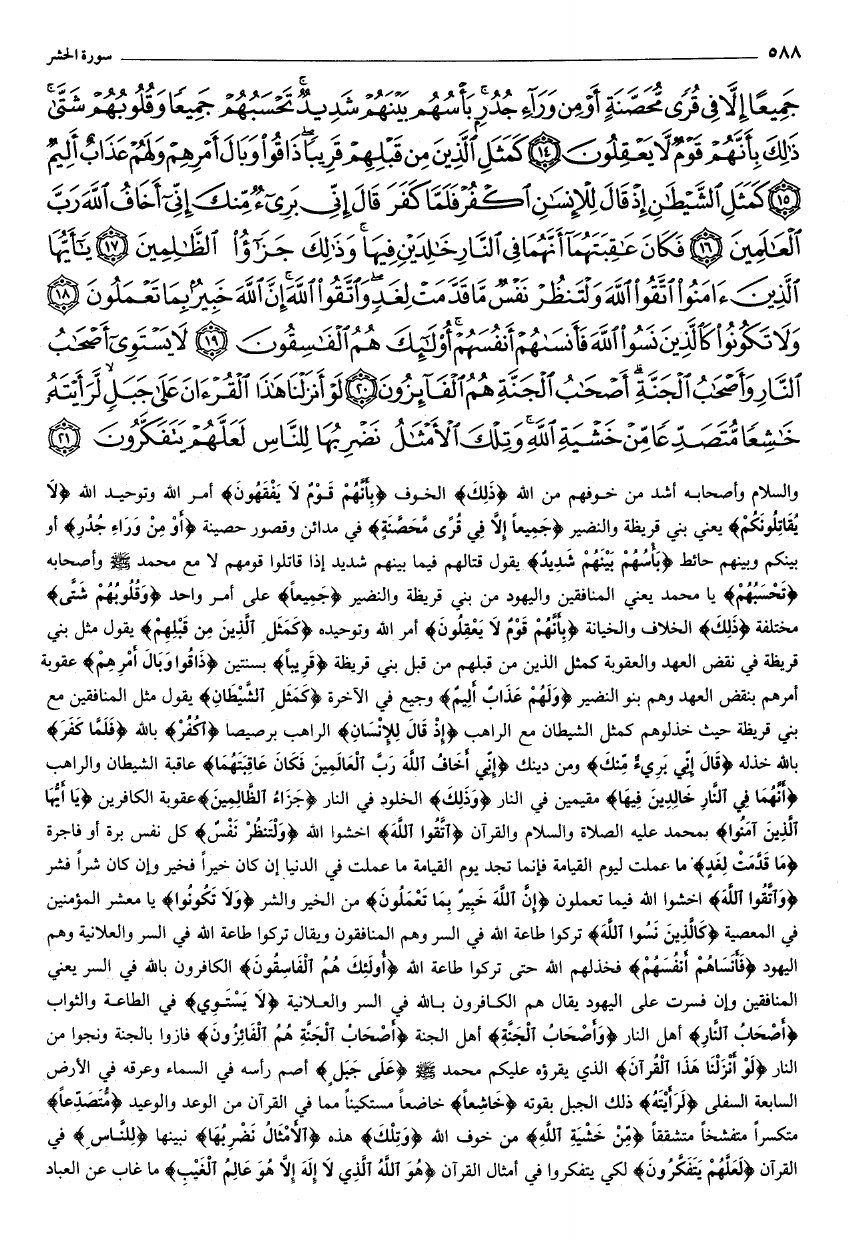 ٥٨٨ سورة الحشر
جَمِيعًا إِلَّا فِى قُرًى مُّحَصَّنَةٍ أَوْ مِن وَرَآءِ جُدُرٍۭ ۚ بَأْسُهُم بَيْنَهُمْ شَدِيدٌ ۚ تَحْسَبُهُمْ جَمِيعًا وَقُلُوبُهُمْ شَتَّىٰ ۚ
ذَٰلِكَ بِأَنَّهُمْ قَوْمٌ لَّا يَعْقِلُونَ ﴿١٤﴾ كَمَثَلِ ٱلَّذِينَ مِن قَبْلِهِمْ قَرِيبًا ۖ ذَاقُوا۟ وَبَالَ أَمْرِهِمْ وَلَهُمْ عَذَابٌ أَلِيمٌ
﴿١٥﴾ كَمَثَلِ ٱلشَّيْطَٰنِ إِذْ قَالَ لِلْإِنسَٰنِ ٱكْفُرْ فَلَمَّا كَفَرَ قَالَ إِنِّى بَرِىٓءٌ مِّنكَ إِنِّىٓ أَخَافُ ٱللَّهَ رَبَّ
ٱلْعَٰلَمِينَ ﴿١٦﴾ فَكَانَ عَٰقِبَتَهُمَآ أَنَّهُمَا فِى ٱلنَّارِ خَٰلِدَيْنِ فِيهَا ۚ وَذَٰلِكَ جَزَٰٓؤُا۟ ٱلظَّٰلِمِينَ ﴿١٧﴾ يَٰٓأَيُّهَا
ٱلَّذِينَ ءَامَنُوا۟ ٱتَّقُوا۟ ٱللَّهَ وَلْتَنظُرْ نَفْسٌ مَّا قَدَّمَتْ لِغَدٍ ۖ وَٱتَّقُوا۟ ٱللَّهَ ۚ إِنَّ ٱللَّهَ خَبِيرٌۢ بِمَا تَعْمَلُونَ ﴿١٨﴾
وَلَا تَكُونُوا۟ كَٱلَّذِينَ نَسُوا۟ ٱللَّهَ فَأَنسَىٰهُمْ أَنفُسَهُمْ ۚ أُو۟لَٰٓئِكَ هُمُ ٱلْفَٰسِقُونَ ﴿١٩﴾ لَا يَسْتَوِىٓ أَصْحَٰبُ
ٱلنَّارِ وَأَصْحَٰبُ ٱلْجَنَّةِ ۚ أَصْحَٰبُ ٱلْجَنَّةِ هُمُ ٱلْفَآئِزُونَ ﴿٢٠﴾ لَوْ أَنزَلْنَا هَٰذَا ٱلْقُرْءَانَ عَلَىٰ جَبَلٍ لَّرَأَيْتَهُۥ
خَٰشِعًا مُّتَصَدِّعًا مِّنْ خَشْيَةِ ٱللَّهِ ۚ وَتِلْكَ ٱلْأَمْثَٰلُ نَضْرِبُهَا لِلنَّاسِ لَعَلَّهُمْ يَتَفَكَّرُونَ ﴿٢١﴾
والسلام وأصحابه أشد من خوفهم من الله ﴿ذَلِكَ﴾ الخوف ﴿بِأَنَّهُمْ قَوْمٌ لَا يَفْقَهُونَ﴾ أمر الله وتوحيد الله ﴿لَا
يُقَاتِلُونَكُمْ﴾ يعني بني قريظة والنضير ﴿جَمِيعاً إِلَّا فِي قُرًى مُّحَصَّنَةٍ﴾ في مدائن وقصور حصينة ﴿أَوْ مِنْ وَرَاءِ جُدُرٍ﴾ أو
بينكم وبينهم حائط ﴿بَأْسُهُمْ بَيْنَهُمْ شَدِيدٌ﴾ يقول قتالهم فيما بينهم شديد إذا قاتلوا قومهم لا مع محمد ﷺ وأصحابه
﴿تَحْسَبُهُمْ﴾ يا محمد يعني المنافقين واليهود من بني قريظة والنضير ﴿جَمِيعاً﴾ على أمر واحد ﴿وَقُلُوبُهُمْ شَتَّى﴾
مختلفة ﴿ذَلِكَ﴾ الخلاف والخيانة ﴿بِأَنَّهُمْ قَوْمٌ لَا يَعْقِلُونَ﴾ أمر الله وتوحيده ﴿كَمَثَلِ ٱلَّذِينَ مِن قَبْلِهِمْ﴾ يقول مثل بني
قريظة في نقض العهد والعقوبة كمثل الذين من قبلهم من قبل بني قريظة ﴿قَرِيباً﴾ بسنتين ﴿ذَاقُوا وَبَالَ أَمْرِهِمْ﴾ عقوبة
أمرهم بنقض العهد وهم بنو النضير ﴿وَلَهُمْ عَذَابٌ أَلِيمٌ﴾ وجيع في الآخرة ﴿كَمَثَلِ ٱلشَّيْطَانِ﴾ يقول مثل المنافقين مع
بني قريظة حيث خذلوهم كمثل الشيطان مع الراهب ﴿إِذْ قَالَ لِلإِنْسَانِ﴾ الراهب برصيصا ﴿ٱكْفُرْ﴾ بالله ﴿فَلَمَّا كَفَرَ﴾
بالله خذله ﴿قَالَ إِنِّي بَرِيءٌ مِّنكَ﴾ ومن دينك ﴿إِنِّي أَخَافُ ٱللَّهَ رَبَّ ٱلْعَالَمِينَ فَكَانَ عَاقِبَتَهُمَا﴾ عاقبة الشيطان والراهب
﴿أَنَّهُمَا فِي ٱلنَّارِ خَالِدَينِ فِيهَا﴾ مقيمين في النار ﴿وَذَلِكَ﴾ الخلود في النار ﴿جَزَاءُ ٱلظَّالِمِينَ﴾ عقوبة الكافرين ﴿يَا أَيُّهَا
ٱلَّذِينَ آمَنُوا﴾ بمحمد عليه الصلاة والسلام والقرآن ﴿ٱتَّقُوا ٱللَّهَ﴾ اخشوا الله ﴿وَلْتَنظُرْ نَفْسٌ﴾ كل نفس برة أو فاجرة
﴿مَا قَدَّمَتْ لِغَدٍ﴾ ما عملت ليوم القيامة فإنما تجد يوم القيامة ما عملت في الدنيا إن كان خيراً فخير وإن كان شراً فشر
﴿وَٱتَّقُوا ٱللَّهَ﴾ اخشوا الله فيما تعملون ﴿إِنَّ ٱللَّهَ خَبِيرٌ بِمَا تَعْمَلُونَ﴾ من الخير والشر ﴿وَلَا تَكُونُوا﴾ يا معشر المؤمنين
في المعصية ﴿كَالَّذِينَ نَسُوا ٱللَّهَ﴾ تركوا طاعة الله في السر وهم المنافقون ويقال تركوا طاعة الله في السر والعلانية وهم
اليهود ﴿فَأَنْسَاهُمْ أَنفُسَهُمْ﴾ فخذلهم الله حتى تركوا طاعة الله ﴿أُولَئِكَ هُمُ ٱلْفَاسِقُونَ﴾ الكافرون بالله في السر يعني
المنافقين وإن فسرت على اليهود يقال هم الكافرون بالله في السر والعلانية ﴿لَا يَسْتَوِي﴾ في الطاعة والثواب
﴿أَصْحَابُ ٱلنَّارِ﴾ أهل النار ﴿وَأَصْحَابُ ٱلْجَنَّةِ﴾ أهل الجنة ﴿أَصْحَابُ ٱلْجَنَّةِ هُمُ ٱلْفَائِزُونَ﴾ فازوا بالجنة ونجوا من
النار ﴿لَوْ أَنْزَلْنَا هَذَا ٱلْقُرْآنَ﴾ الذي يقرؤه عليكم محمد ﷺ ﴿عَلَى جَبَلٍ﴾ أصم رأسه في السماء وعرقه في الأرض
السابعة السفلى ﴿لَرَأَيْتَهُ﴾ ذلك الجبل بقوته ﴿خَاشِعاً﴾ خاضعاً مستكيناً مما في القرآن من الوعد والوعيد ﴿مُّتَصَدِّعاً﴾
متكسراً متفشخاً متشققاً ﴿مِّنْ خَشْيَةِ ٱللَّهِ﴾ من خوف الله ﴿وَتِلْكَ﴾ هذه ﴿ٱلأَمْثَالُ نَضْرِبُهَا﴾ نبينها ﴿لِلنَّاسِ﴾ في
القرآن ﴿لَعَلَّهُمْ يَتَفَكَّرُونَ﴾ لكي يتفكروا في أمثال القرآن ﴿هُوَ ٱللَّهُ ٱلَّذِي لَا إِلَهَ إِلَّا هُوَ عَالِمُ ٱلْغَيْبِ﴾ ما غاب عن العباد